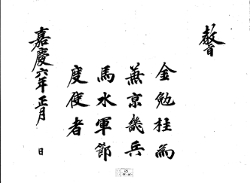 敎旨
金勉柱爲
兼京畿兵
馬水軍節
度使者
嘉慶六年正月 日